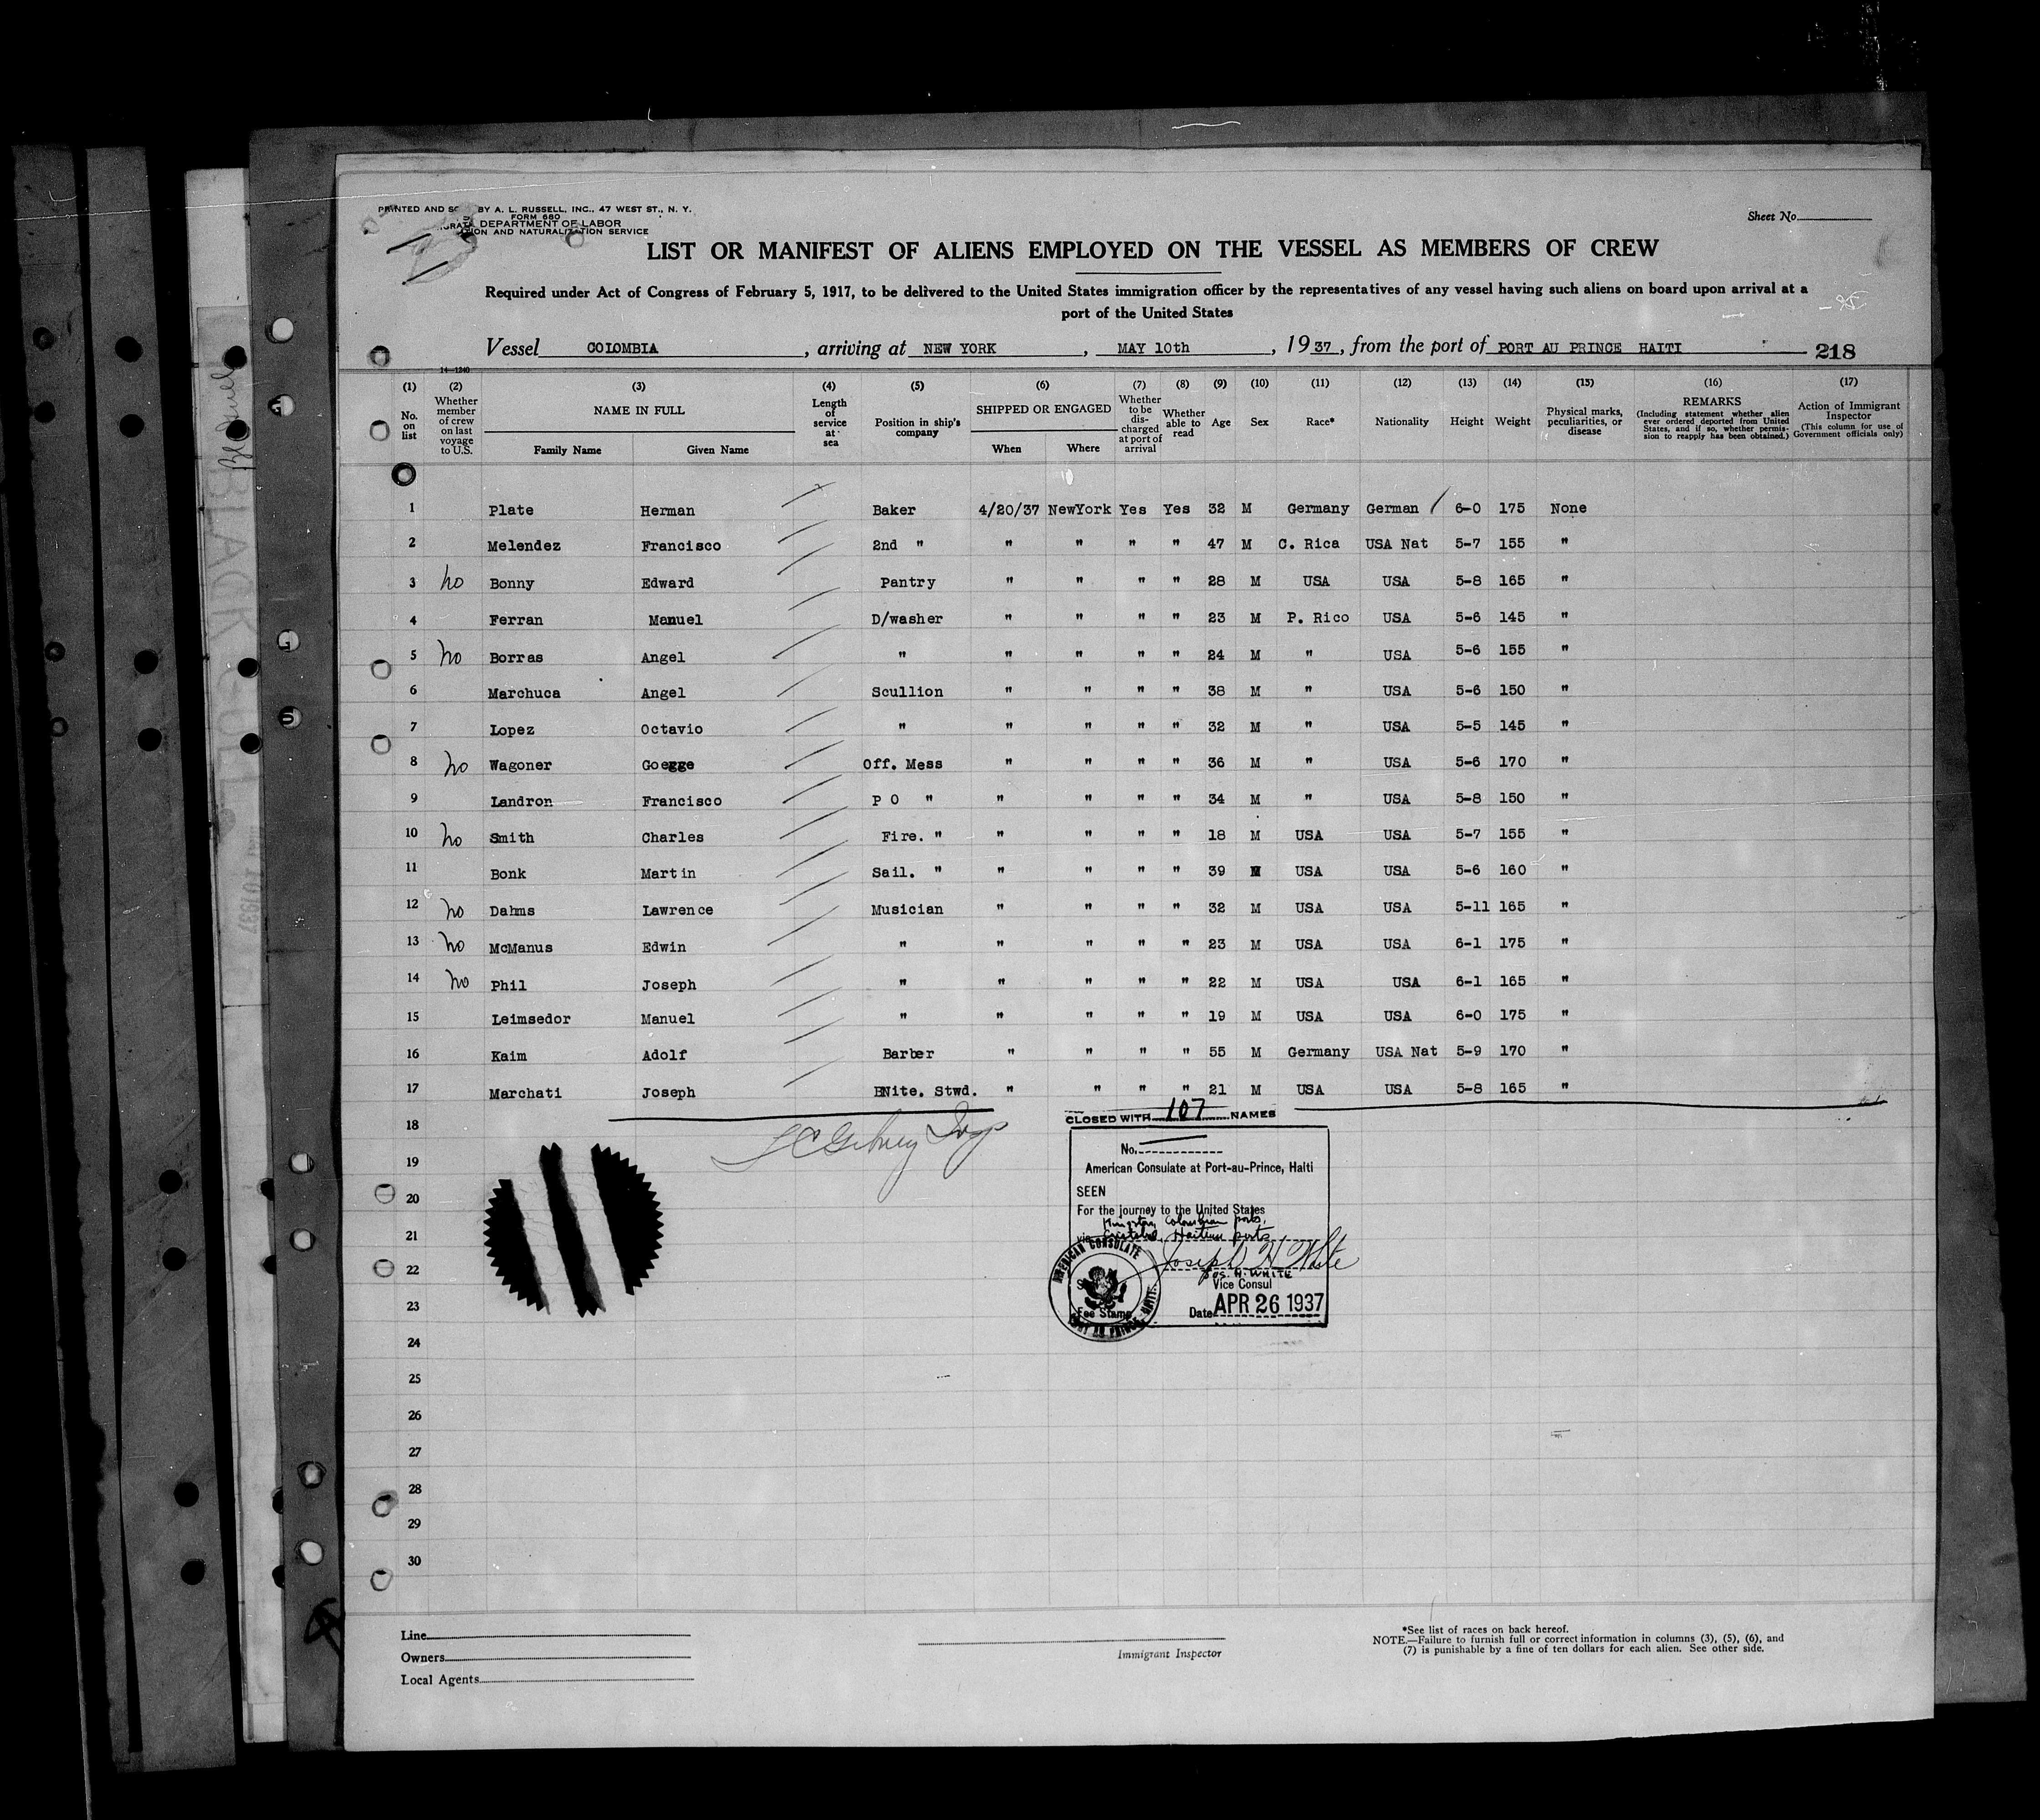 PRINTED AND SO BY A. L. RUSSELL, INC., 47 WEST ST., N. Y.
FORM 680
DEPARTMENT OF LABOR
ION AND NATURALIZATION SERVICE
Sheet No.
LIST OR MANIFEST OF ALIENS EMPLOYED ON THE VESSEL AS MEMBERS OF CREW
Required under Act of Congress of February 5, 1917, to be delivered to the United States immigration officer by the representatives of any vessel having such aliens on board upon arrival at a
port of the United States
Vessel COLOMBIA, arriving at NEW YORK, MAY 10th, 1937, from the port of PORT AU PRINCE HAITI 218
14-1240
(1) (2) (3) (4) (5) (6) (7) (8) (9) (10) (11) (12) (13) (14) (15) (16) (17)
No. on list
Whether member of crew on last voyage to U.S.
NAME IN FULL
Family Name Given Name
Length of service at sea
Position in ship's company
SHIPPED OR ENGAGED
When Where
Whether to be discharged at port of arrival
Whether able to read
Age
Sex
Race*
Nationality
Height
Weight
Physical marks, peculiarities, or disease
REMARKS
(Including statement whether alien ever ordered deported from United States, and if so, whether permission to reapply has been obtained.)
Action of Immigrant Inspector
(This column for use of Government officials only)
1 Plate Herman Baker 4/20/37 NewYork Yes Yes 32 M Germany German 6-0 175 None
2 Melendez Francisco 2nd " " " " " 47 M C. Rica USA Nat 5-7 155 "
3 no Bonny Edward Pantry " " " " 28 M USA USA 5-8 165 "
4 Ferran Manuel D/washer " " " " 23 M P. Rico USA 5-6 145 "
5 no Borras Angel " " " " " 24 M " USA 5-6 155 "
6 Marchuca Angel Scullion " " " " 38 M " USA 5-6 150 "
7 Lopez Octavio " " " " " 32 M " USA 5-5 145 "
8 no Wagoner Goegge Off. Mess " " " " 36 M " USA 5-6 170 "
9 Landron Francisco P O " " " " " 34 M " USA 5-8 150 "
10 no Smith Charles Fire. " " " " " 18 M USA USA 5-7 155 "
11 Bonk Martin Sail. " " " " " 39 M USA USA 5-6 160 "
12 no Dahms Lawrence Musician " " " " 32 M USA USA 5-11 165 "
13 no McManus Edwin " " " " " 23 M USA USA 6-1 175 "
14 no Phil Joseph " " " " " 22 M USA USA 6-1 165 "
15 Leimsedor Manuel " " " " " 19 M USA USA 6-0 175 "
16 Kaim Adolf Barber " " " " 55 M Germany USA Nat 5-9 170 "
17 Marchati Joseph Nite. Stwd. " " " " 21 M USA USA 5-8 165 "
CLOSED WITH 107 NAMES
18
19
20
21
22
23
24
25
26
27
28
29
30
No.
American Consulate at Port-au-Prince, Haiti
SEEN
For the journey to the United States
Kingston, Colombian ports,
via Cristobal, Haitian ports
Joseph H White
JOS. H. WHITE
Vice Consul
Fee Stamp
Date APR 26 1937
AMERICAN CONSULATE
PORT AU PRINCE, HAITI
Line
Owners
Local Agents
Immigrant Inspector
*See list of races on back hereof.
NOTE.—Failure to furnish full or correct information in columns (3), (5), (6), and
(7) is punishable by a fine of ten dollars for each alien. See other side.